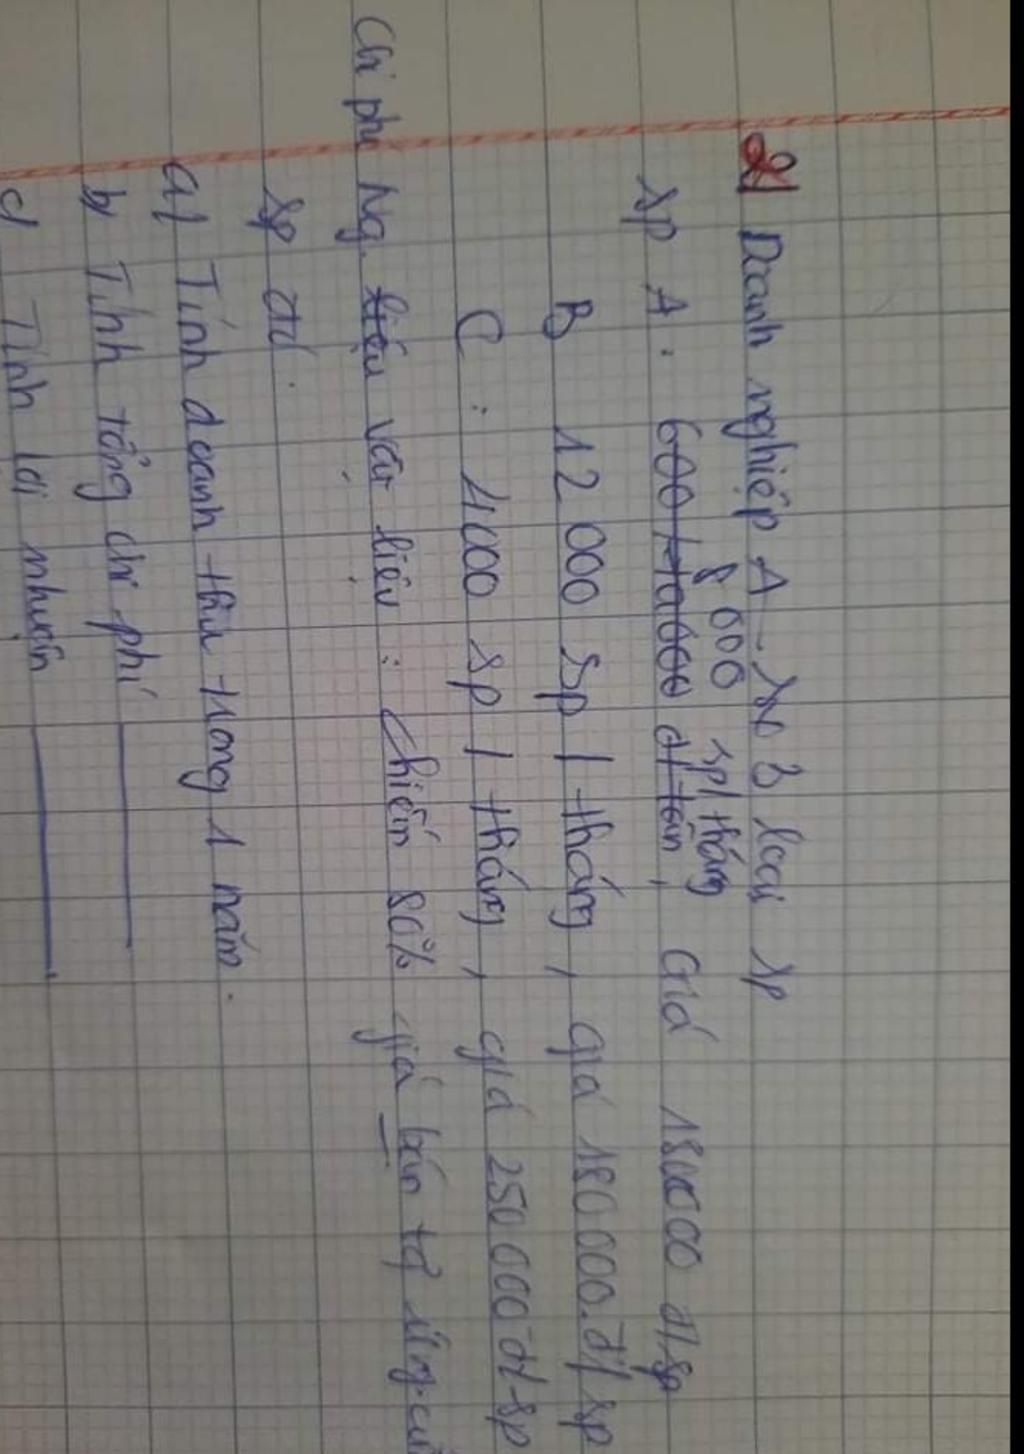 2/ Doanh nghiệp A - sx 3 loại sp
8 000 sp/tháng
sp A : 600 đ/tấn, Giá 180000 đ/sp
B 12 000 sp / tháng, giá 180 000.đ/sp
C : 4000 sp / tháng, giá 250 000 đ/sp
Chi phí Ng. liệu vật liệu : Chiếm 80% giá bán tg ứng của
sp đó.
a) Tính doanh thu trong 1 năm.
b) Tính tổng chi phí
c) Tính lợi nhuận